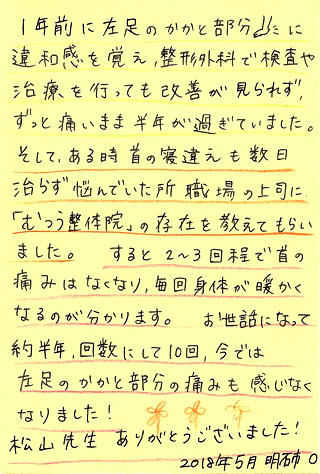 1年前に左足のかかと部分に
違和感を覚え,整形外科で検査や
治療を行っても改善が見られず,
ずっと痛いまま半年が過ぎていました。
そして,ある時首の寝違えも数日
治らず悩んでいた所 職場の上司に
「むつう整体院」の存在を教えてもらい
ました。 すると2〜3回程で首の
痛みはなくなり,毎回身体が暖かく
なるのが分かります。 お世話になって
約半年,回数にして10回,今では
左足のかかと部分の痛みも感じなく
なりました!
松山先生 ありがとうございました!
2018年5月 明石市 O